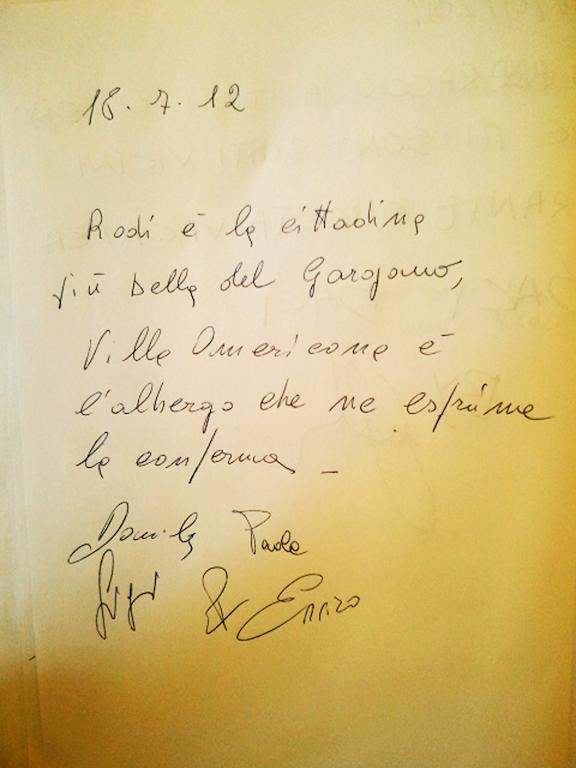 18.7.12
Rodi è la cittadina
più bella del Gargano,
Villa Americana è
l'albergo che ne esprime
la conferma -
Danila Paola
Gigi & Enrico